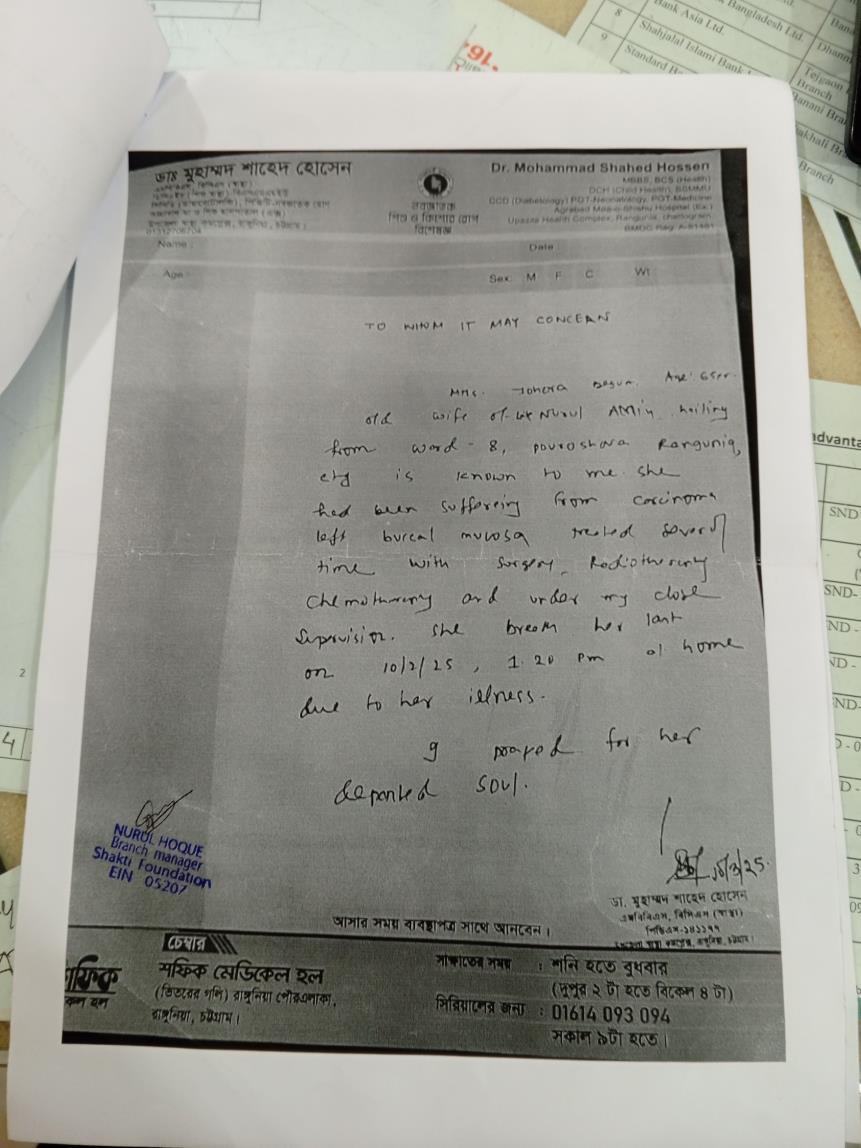 Bank Asia Ltd.
8 Shahjalal Islami Bank
9 Standard
Bangladesh Ltd.
Tejgaon
Branch
Banani
Branch
ডাঃ মুহাম্মদ শাহেদ হোসেন
Dr. Mohammad Shahed Hossen
MBBS, BCS (Health)
DCH (Child Health), BSMMU
CCD (Diabetology) PGT-Neonatology, PGT-Medicine
Agrabad Maa-o-Shishu Hospital (Ex.)
Upazila Health Complex, Rangunia, chattogram.
নবজাতক
শিশু ও কিশোর রোগ
বিশেষজ্ঞ
Name :
Date :
Age :
Sex: M F C Wt
TO WHOM IT MAY CONCERN
Mrs. Johora Begum. Age: 65yr.
old wife of Late Nurul AMin hailing
from word - 8, pouroshova Rangunia,
ctg is known to me. she
had been suffereing from carcinoma
left buccal mucosa treated several
time with surgery, Radiotherapy
Chemotherapy and under my close
Supervision. She breath her last
on 10/2/25, 1.20 pm at home
due to her illness.
I prayed for her
departed soul.
NURUL HOQUE
Branch manager
Shakti Foundation
EIN 05207
/3/25.
ডা. মুহাম্মদ শাহেদ হোসেন
এমবিবিএস, বিসিএস (স্বাস্থ্য)
আসার সময় ব্যবস্থাপত্র সাথে আনবেন।
চেম্বার
শফিক মেডিকেল হল
(ভিতরের গলি) রাঙ্গুনিয়া পৌরএলাকা,
রাঙ্গুনিয়া, চট্টগ্রাম।
সাক্ষাতের সময় : শনি হতে বুধবার
(দুপুর ২ টা হতে বিকেল ৪ টা)
সিরিয়ালের জন্য : 01614 093 094
সকাল ৯টা হতে।
advanta
SND
SND-